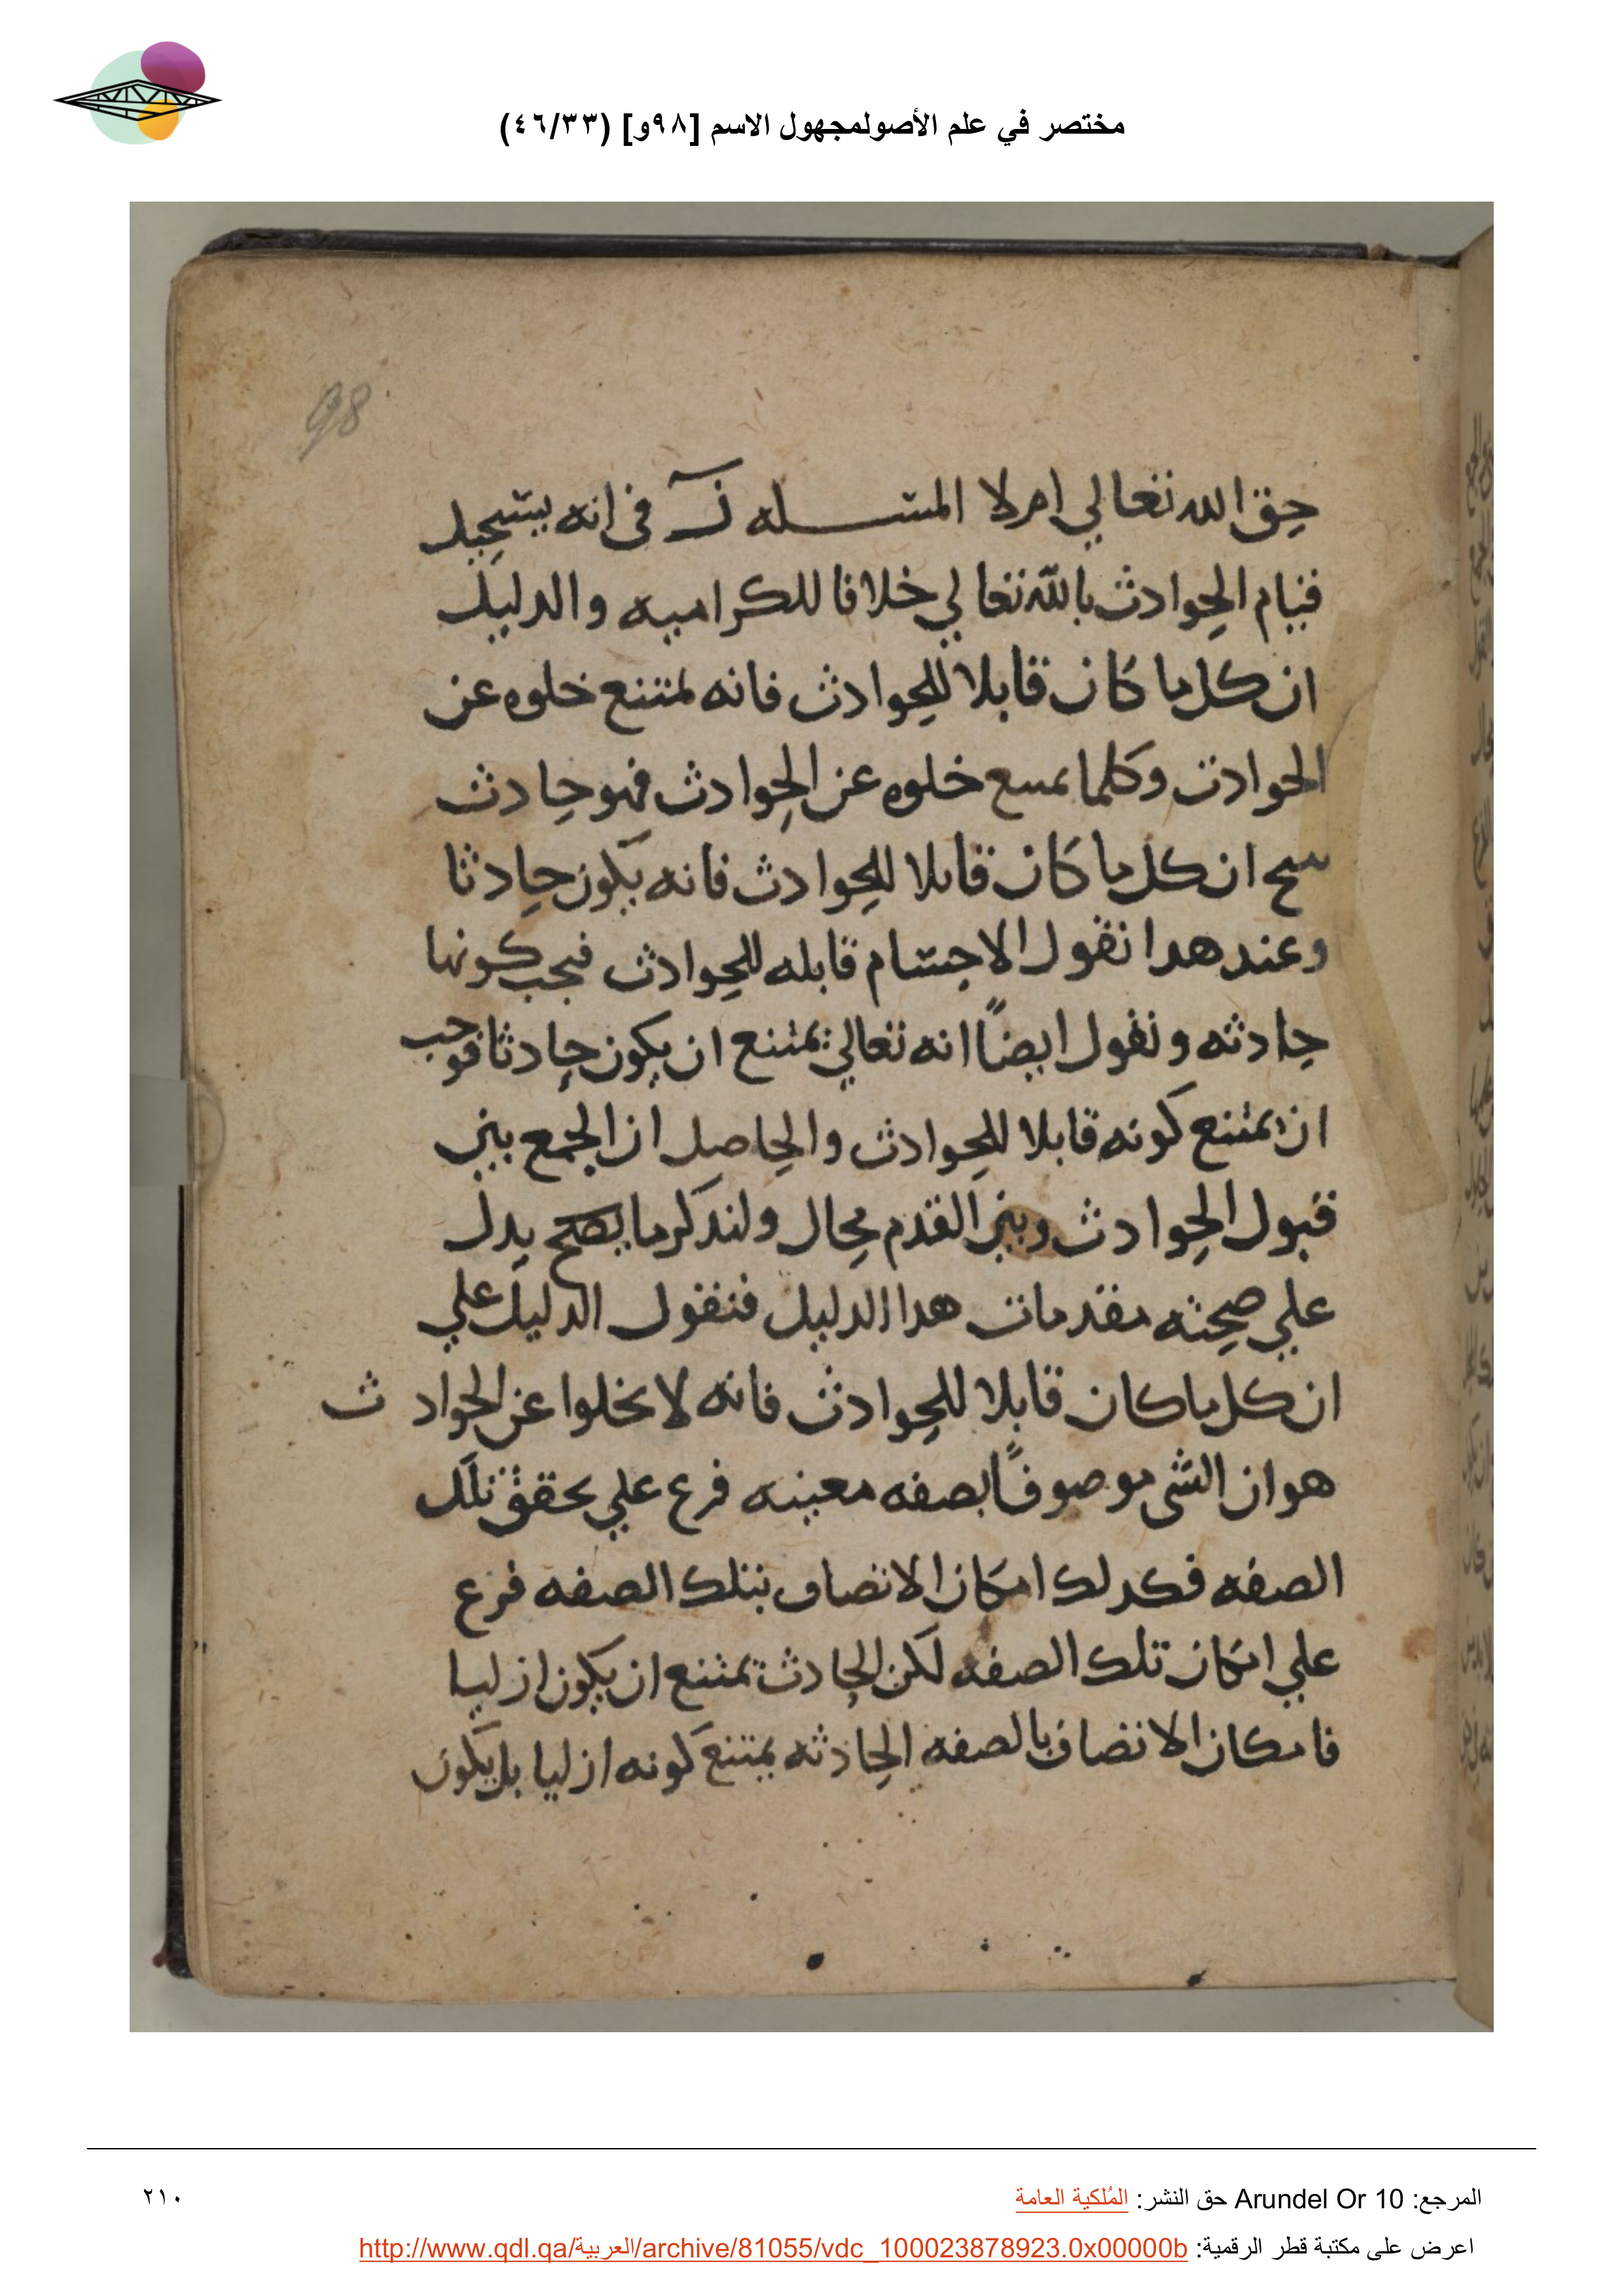 مختصر في علم الأصولمجهول الاسم [٩٨و] (٤٦/٣٣)
98
حق الله تعالي امرلا المسله في انه يستحيل
قيام الحوادث بالله تعالي خلافا للكراميه والدليل
ان كل ما كان قابلا للحوادث فانه يمتنع خلوه عن
الحوادث وكلما يمتنع خلوه عن الحوادث فهو حادث
ينتج ان كل ما كان قابلا للحوادث فانه يكون حادثا
وعند هدا نقول الاجسام قابله للحوادث فيجب كونها
حادثه ونقول ايضًا انه تعالي يمتنع ان يكون حادثا فوجب
ان يمتنع كونه قابلا للحوادث والحاصل ان الجمع بين
قبول الحوادث وبين القدم محال ولندكر ما يدل
علي صحته مقدمات هدا الدليل فنقول الدليل علي
ان كل ما كان قابلا للحوادث فانه لا يخلوا عن الحوادث
هو ان الشي موصوفًا بصفه معينه فرع علي تحقق تلك
الصفه فكدلك امكان الاتصاف بتلك الصفه فرع
علي امكان تلك الصفه لكن الحادث يمتنع ان يكون ازليا
فامكان الاتصاف بالصفه الحادثه يمتنع كونه ازليا بل يكون
المرجع: Arundel Or 10 حق النشر: المُلكية العامة
٢١٠
اعرض على مكتبة قطر الرقمية: http://www.qdl.qa/العربية/archive/81055/vdc_100023878923.0x00000b